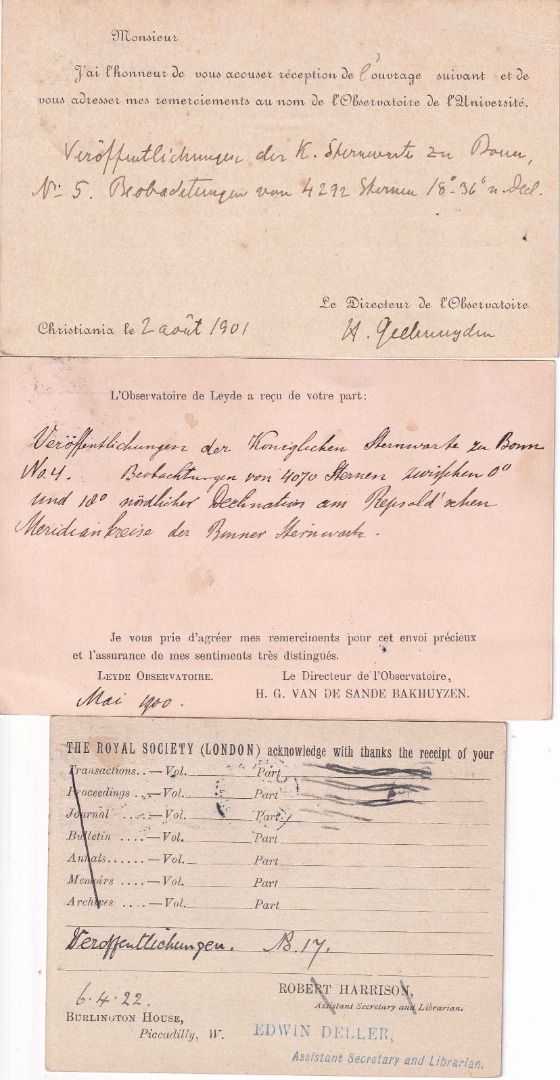 Monsieur
J'ai l'honneur de vous accuser réception de l'ouvrage suivant et de
vous adresser mes remerciements au nom de l'Observatoire de l'Université.
Veröffentlichungen der K. Sternwarte zu Bonn,
No 5. Beobachtungen von 4292 Sternen 18°-36° n. Decl.
Le Directeur de l'Observatoire
Christiania le 2 août 1901
H. Geelmuyden
L'Observatoire de Leyde a reçu de votre part:
Veröffentlichungen der Königlichen Sternwarte zu Bonn
No. 4. Beobachtungen von 4070 Sternen zwischen 0°
und 18° nördlicher Declination am Repsold'schen
Meridiankreise der Bonner Sternwarte.
Je vous prie d'agréer mes remerciments pour cet envoi précieux
et l'assurance de mes sentiments très distingués.
Leyde Observatoire. Le Directeur de l'Observatoire,
Mai 1900. H. G. VAN DE SANDE BAKHUYZEN.
THE ROYAL SOCIETY (LONDON) acknowledge with thanks the receipt of your
Transactions..—Vol. Part
Proceedings ...—Vol. Part
Journal ....—Vol. Part
Bulletin ....—Vol. Part
Annals......—Vol. Part
Memoirs ....—Vol. Part
Archives ....—Vol. Part
Veröffentlichungen. No. 17.
ROBERT HARRISON,
Assistant Secretary and Librarian.
6.4.22.
Burlington House,
Piccadilly, W.
EDWIN DELLER,
Assistant Secretary and Librarian.